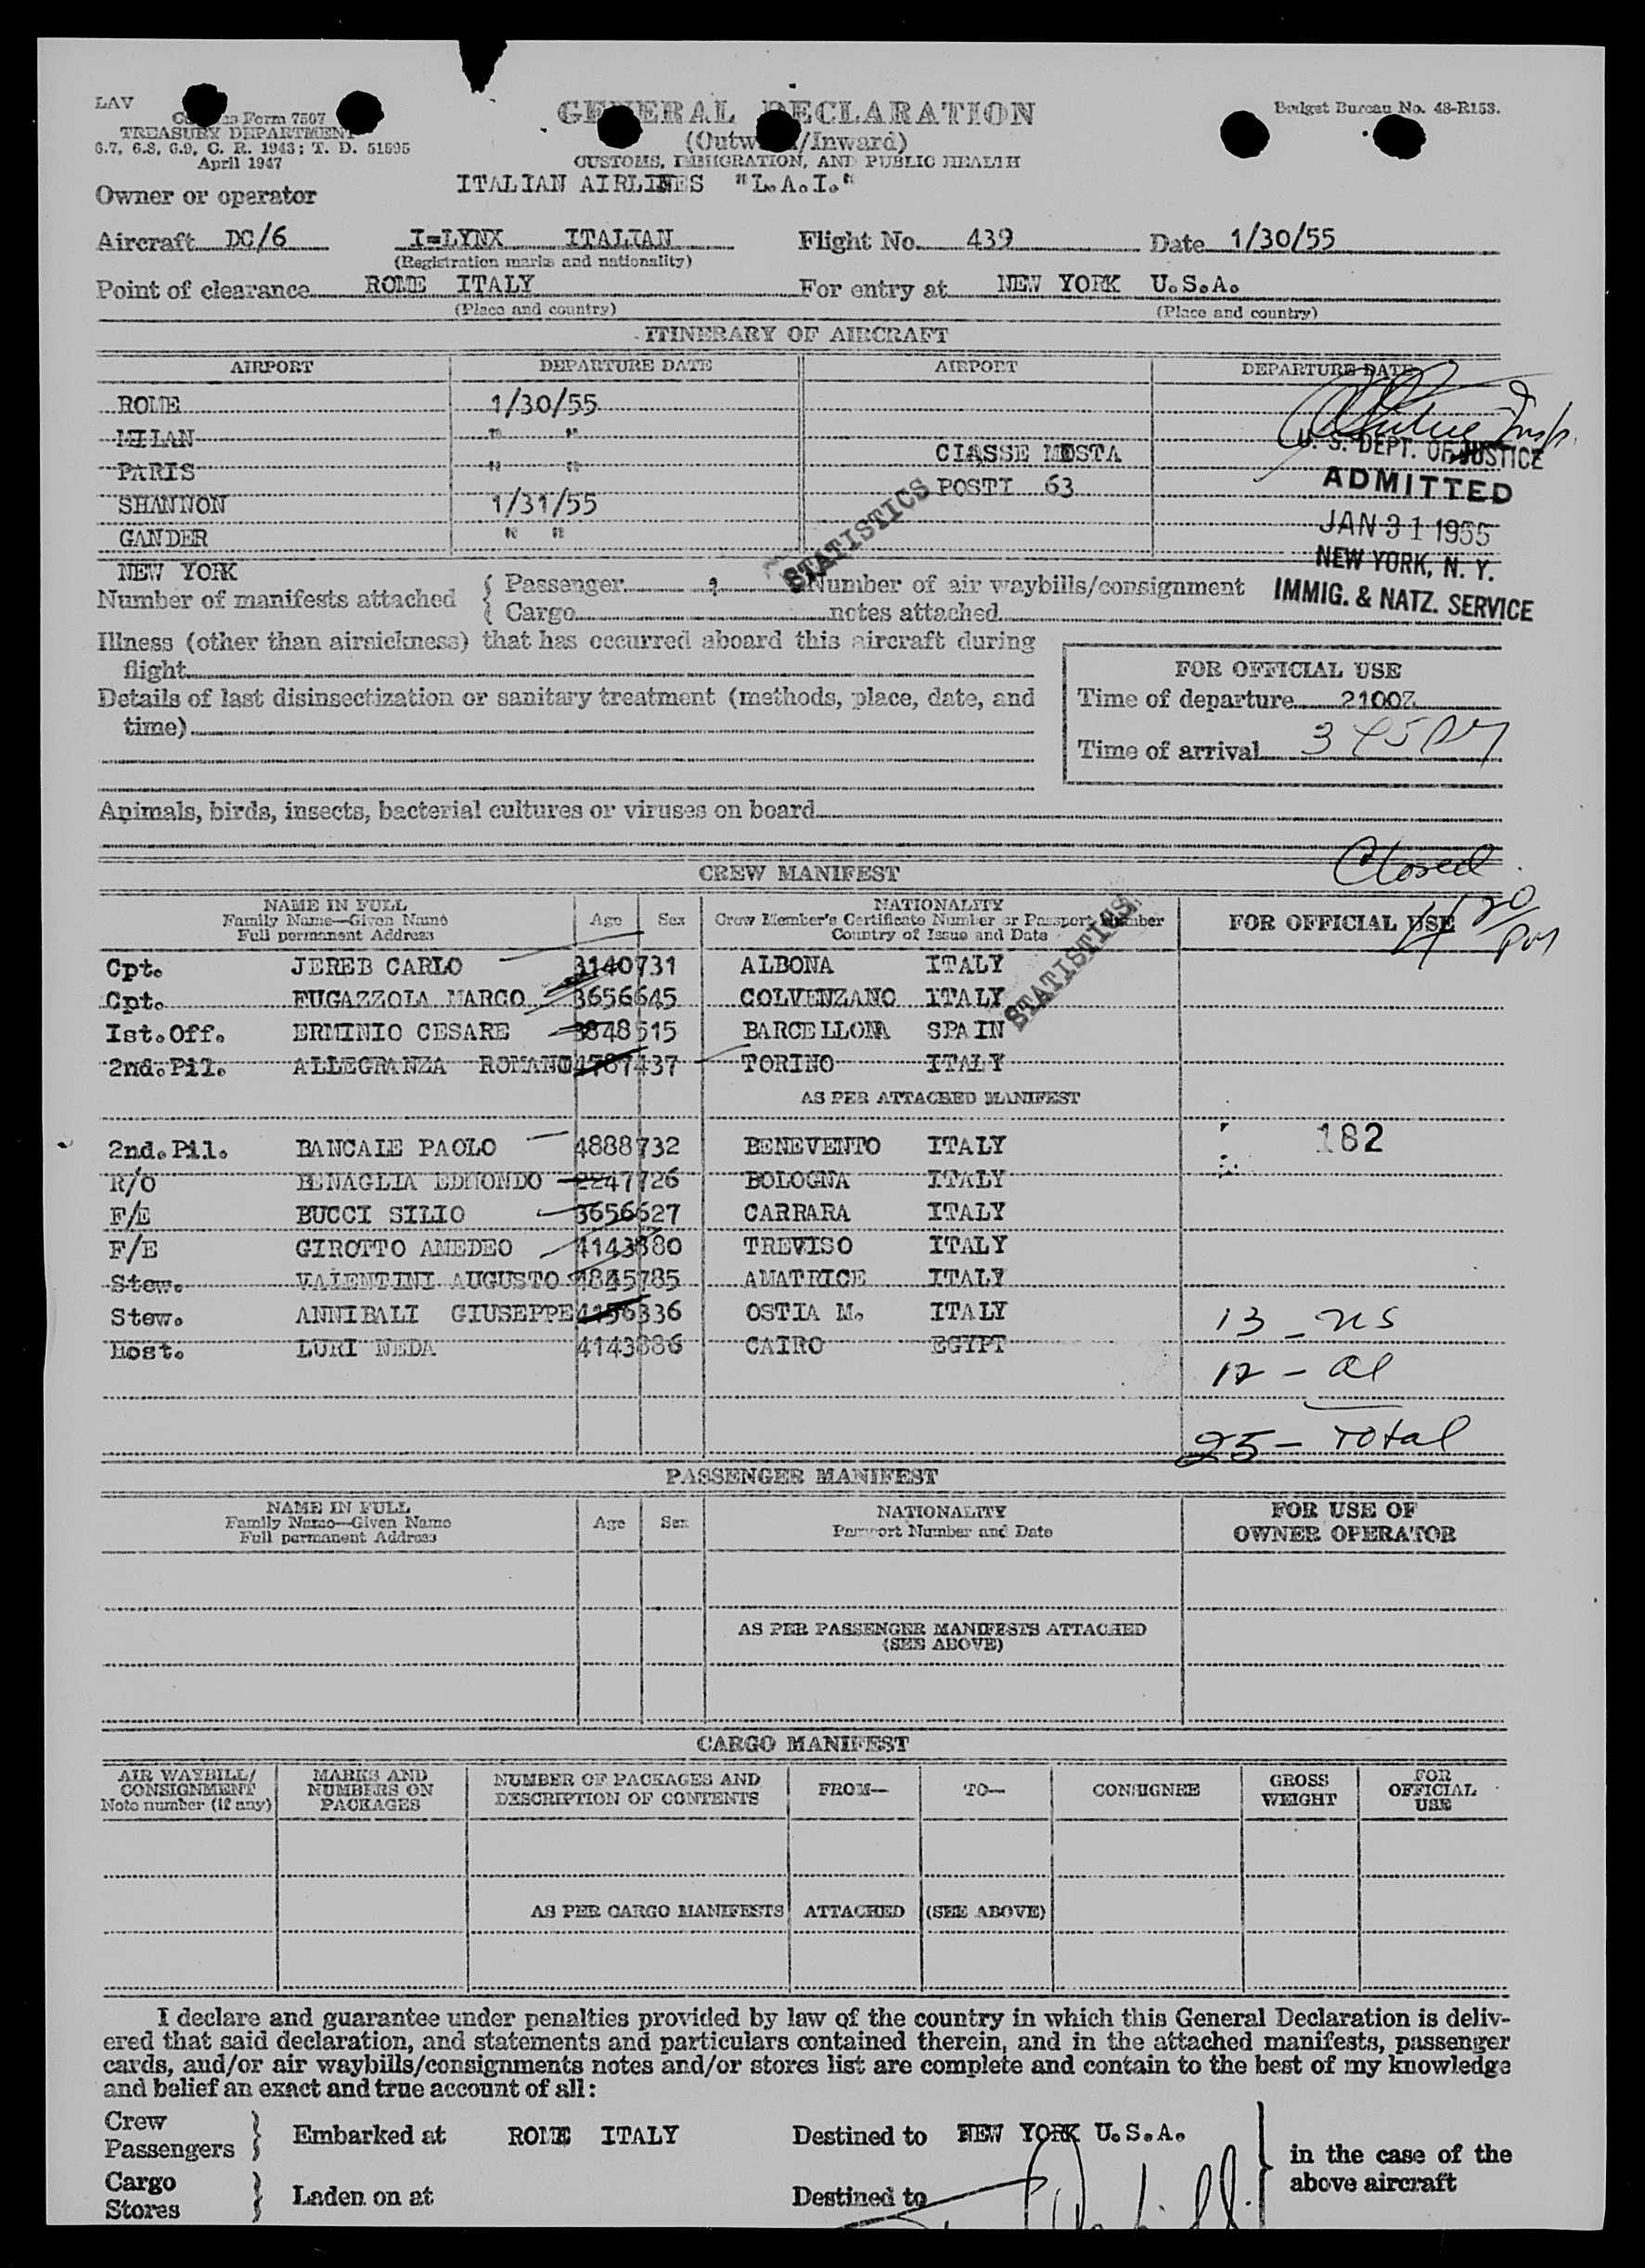 LAV
Form 7507
TREASURY DEPARTMENT
6.7, 6.8, 6.9, C. R. 1943; T. D. 51595
April 1947
GENERAL DECLARATION
(Outward/Inward)
CUSTOMS, IMMIGRATION, AND PUBLIC HEALTH
Budget Bureau No. 48-R153.
Owner or operator ITALIAN AIRLINES "L.A.I."
Aircraft DC/6 I=LYNX ITALIAN Flight No. 439 Date 1/30/55
(Registration marks and nationality)
Point of clearance ROME ITALY For entry at NEW YORK U.S.A.
(Place and country) (Place and country)
ITINERARY OF AIRCRAFT
AIRPORT DEPARTURE DATE AIRPORT DEPARTURE DATE
ROME 1/30/55
MILAN " "
CIASSE MOSTA
PARIS " "
POSTI 63
SHANNON 1/31/55
GANDER " "
NEW YORK
STATISTICS
U. S. DEPT. OF JUSTICE
ADMITTED
JAN 31 1955
NEW YORK, N. Y.
IMMIG. & NATZ. SERVICE
Number of manifests attached { Passenger Number of air waybills/consignment
Cargo notes attached
Illness (other than airsickness) that has occurred aboard this aircraft during
flight
Details of last disinsectization or sanitary treatment (methods, place, date, and
time)
FOR OFFICIAL USE
Time of departure 2100Z
Time of arrival 3 45 PM
Animals, birds, insects, bacterial cultures or viruses on board
Closed
4 20 PM
CREW MANIFEST
NAME IN FULL
Family Name—Given Name
Full permanent Address
Age Sex
NATIONALITY
Crew Member's Certificate Number or Passport Number
Country of Issue and Date
FOR OFFICIAL USE
STATISTICS
Cpt. JEREB CARLO 3140731 ALBONA ITALY
Cpt. FUGAZZOLA MARCO 3656645 COLVENZANO ITALY
Ist.Off. ERMINIO CESARE 3848515 BARCELLONA SPAIN
2nd.Pil. ALLEGRANZA ROMANO 4787437 TORINO ITALY
AS PER ATTACHED MANIFEST
2nd.Pil. BANCALE PAOLO 4888732 BENEVENTO ITALY
182
R/O BENAGLIA EDMONDO 2247726 BOLOGNA ITALY
F/E BUCCI SILIO 3656627 CARRARA ITALY
F/E GIROTTO AMEDEO 4143880 TREVISO ITALY
Stew. VALENTINI AUGUSTO 4845785 AMATRICE ITALY
Stew. ANNIBALI GIUSEPPE 4156336 OSTIA M. ITALY
Host. LURI NEDA 4143886 CAIRO EGYPT
13 - US
12 - al
25 - Total
PASSENGER MANIFEST
NAME IN FULL
Family Name—Given Name
Full permanent Address
Age Sex
NATIONALITY
Passport Number and Date
FOR USE OF
OWNER OPERATOR
AS PER PASSENGER MANIFESTS ATTACHED
(SEE ABOVE)
CARGO MANIFEST
AIR WAYBILL/
CONSIGNMENT
Note number (if any)
MARKS AND
NUMBERS ON
PACKAGES
NUMBER OF PACKAGES AND
DESCRIPTION OF CONTENTS
FROM— TO— CONSIGNEE
GROSS
WEIGHT
FOR
OFFICIAL
USE
AS PER CARGO MANIFESTS ATTACHED (SEE ABOVE)
I declare and guarantee under penalties provided by law of the country in which this General Declaration is deliv-
ered that said declaration, and statements and particulars contained therein, and in the attached manifests, passenger
cards, and/or air waybills/consignments notes and/or stores list are complete and contain to the best of my knowledge
and belief an exact and true account of all:
Crew
Passengers } Embarked at ROME ITALY Destined to NEW YORK U.S.A.
in the case of the
above aircraft
Cargo
Stores } Laden on at Destined to